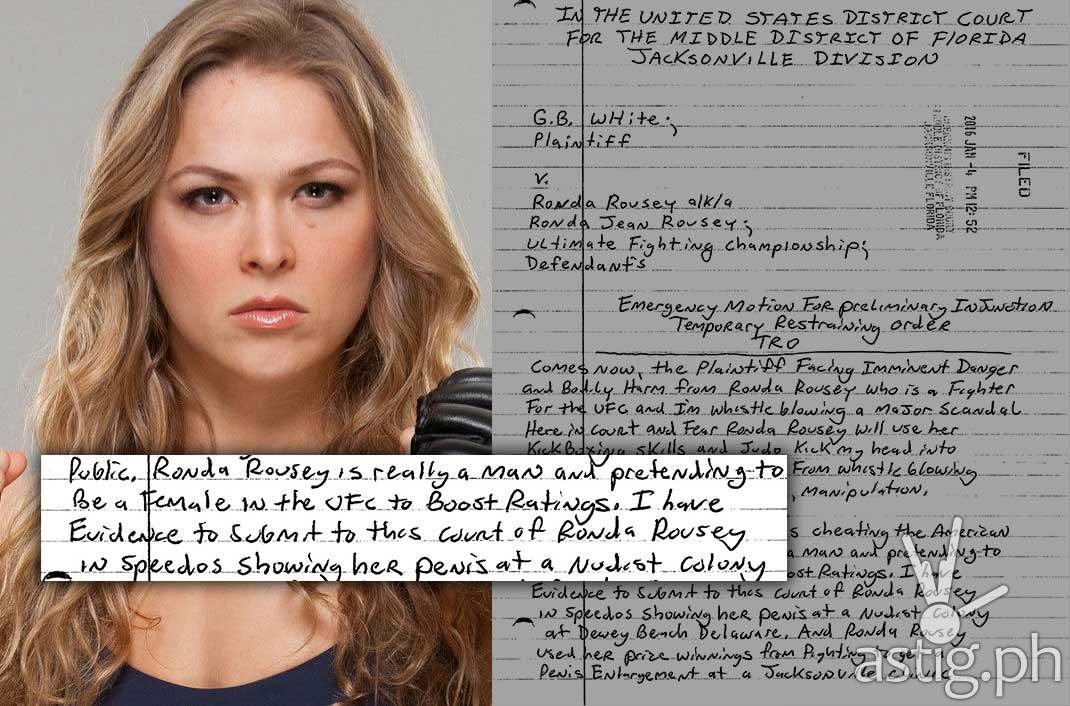 IN THE UNITED STATES DISTRICT COURT
FOR THE MIDDLE DISTRICT OF FLORIDA
JACKSONVILLE DIVISION
G.B. WHite;
Plaintiff
V.
Ronda Rousey a/k/a
Ronda Jean Rousey;
Ultimate Fighting Championship;
Defendants
2016 JAN -4 PM 12:52
FILED
Emergency Motion For Preliminary Injunction
Temporary Restraining Order
TRO
Comes Now, the Plaintiff Facing Imminent Danger
and Bodily Harm from Ronda Rousey who is a Fighter
For the UFC and Im whistle blowing a Major Scandal
Here in Court and Fear Ronda Rousey will use her
KickBoxing skills and Judo Kick my head into
From whistle blowing
, Manipulation.
Public. Ronda Rousey is really a man and pretending to
Be a Female in the UFC to Boost Ratings. I have
Evidence to Submit to this court of Ronda Rousey
in Speedos Showing her penis at a Nudist Colony
s cheating the American
a man and pretending to
ost Ratings. I have
Evidence to Submit to this court of Ronda Rousey
in Speedos Showing her penis at a Nudist Colony
at Dewey Beach Delaware. And Ronda Rousey
used her prize winnings from Fighting to get a
Penis Enlargement at a Jacksonville
astig.ph